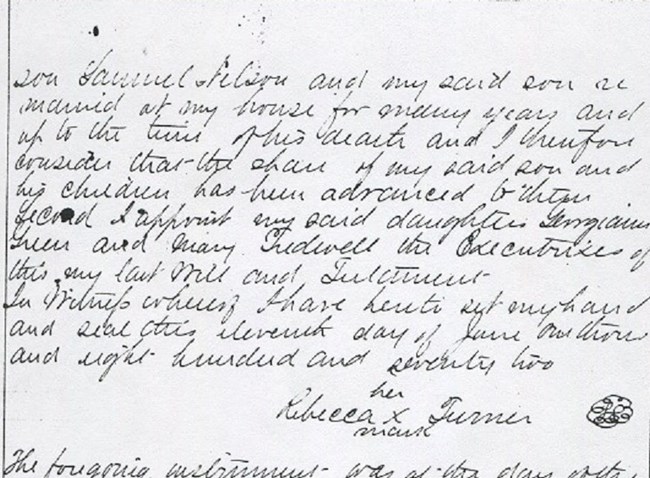 son Samuel Nelson and my said son re
mained at my house for many years and
up to the time of his death and I therefore
consider that the share of my said son and
his children has been advanced to them
Second I appoint my said daughters Georgiana
Green and Mary Tredwell the Executrixes of
this my last Will and Testament
In Witness whereof I have hereto set my hand
and seal this eleventh day of June one thous
and eight hundred and seventy two
her
Rebecca x Turner
mark
The foregoing instrument was at the day of the